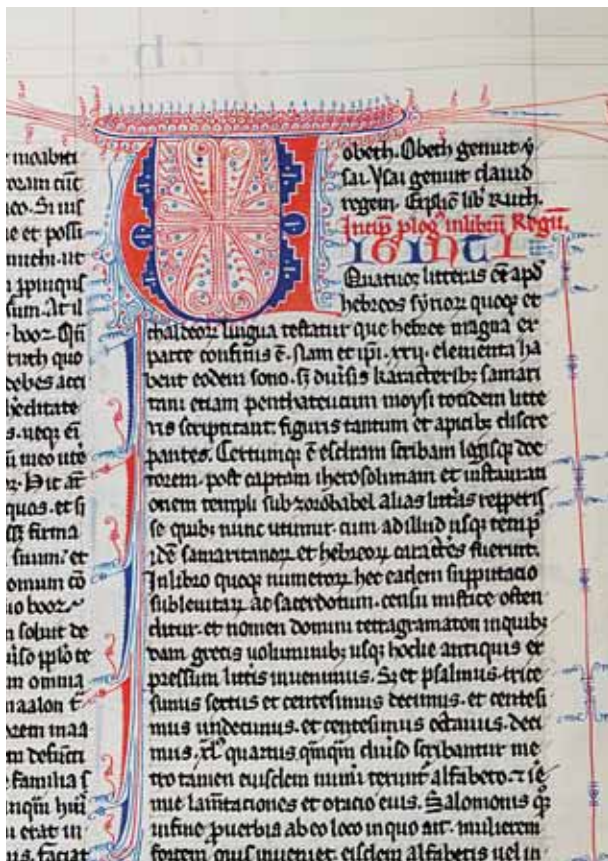 moabiti
Si uis
et possi
michi. ut
sum. At il
booz. Qñ
ruth quo
debes acci
heditate
meo
quos. et si
firma
suum. et
omum
booz
soluit de
omnia
maalon
orem maa
defūcti
familia s
erat in
faciat
obeth. Obeth genuit ẏ
sai. Ysai genuit dauid
regem. Explic̄ lib̄ Ruth.
Incip̄ plog̅ inlibrū Regū.
IGINTI
Quatuor litteras ēē apd̄
hebreos syroꝝ quoqȝ et
chaldeoꝝ lingua testatur que hebree magna ex
parte confinis ē. Nam et ipi̅ .xxij. elementa ha
bent eodem sono. sȝ diu̅sis karacteribȝ samari
tani etiam penthateucum moysi totidem litte
ris scriptitant. figuris tantum et apicibȝ discre
pantes. Certumqȝ ē esdram scribam legisqȝ doc
torem. post captam iherosolimam et instaurati
onem templi sub zorobabel alias litt̅as repperis
se quibȝ nunc utimur. cum ad illud usqȝ temp̄
idē samaritanoꝝ et hebreoꝝ caracte̅s fuerint.
Inlibro quoqȝ numeroꝝ hec eadem supputacio
sub leuitaꝝ ac sacerdotum. censu mistice osten
ditur. et nomen domini tetragramaton inquibȝ
dam grecis uoluminibȝ usqȝ hodie antiquis ex
pressum litt̅is inuenimus. Sȝ et psalmus. trice
simus sextus et centesimus decimus. et centesi
mus undecimus. et centesimus octauus. deci
mus. xl. quartus. qm̄qm̄ diu̅so scribantur me
tro tamen eiusdem num̅i texunt̅ alfabeto. ⁊ ie̅
mie lam̅taciones et oracio eius. Salomonis qȝ
infine prouerbiis ab eo loco in quo ait. mulierem
fortem quis inueniet. eisdem alfabetis uel in